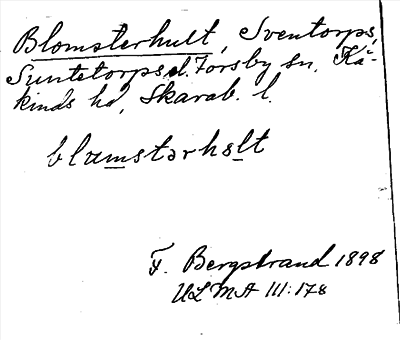 Blomsterhult, Sventorps,
Suntetorps el. Forsby sn. Kå-
kinds hd, Skarab. l.
blumstərhəlt
F. Bergstrand 1898
ULMA 111:178